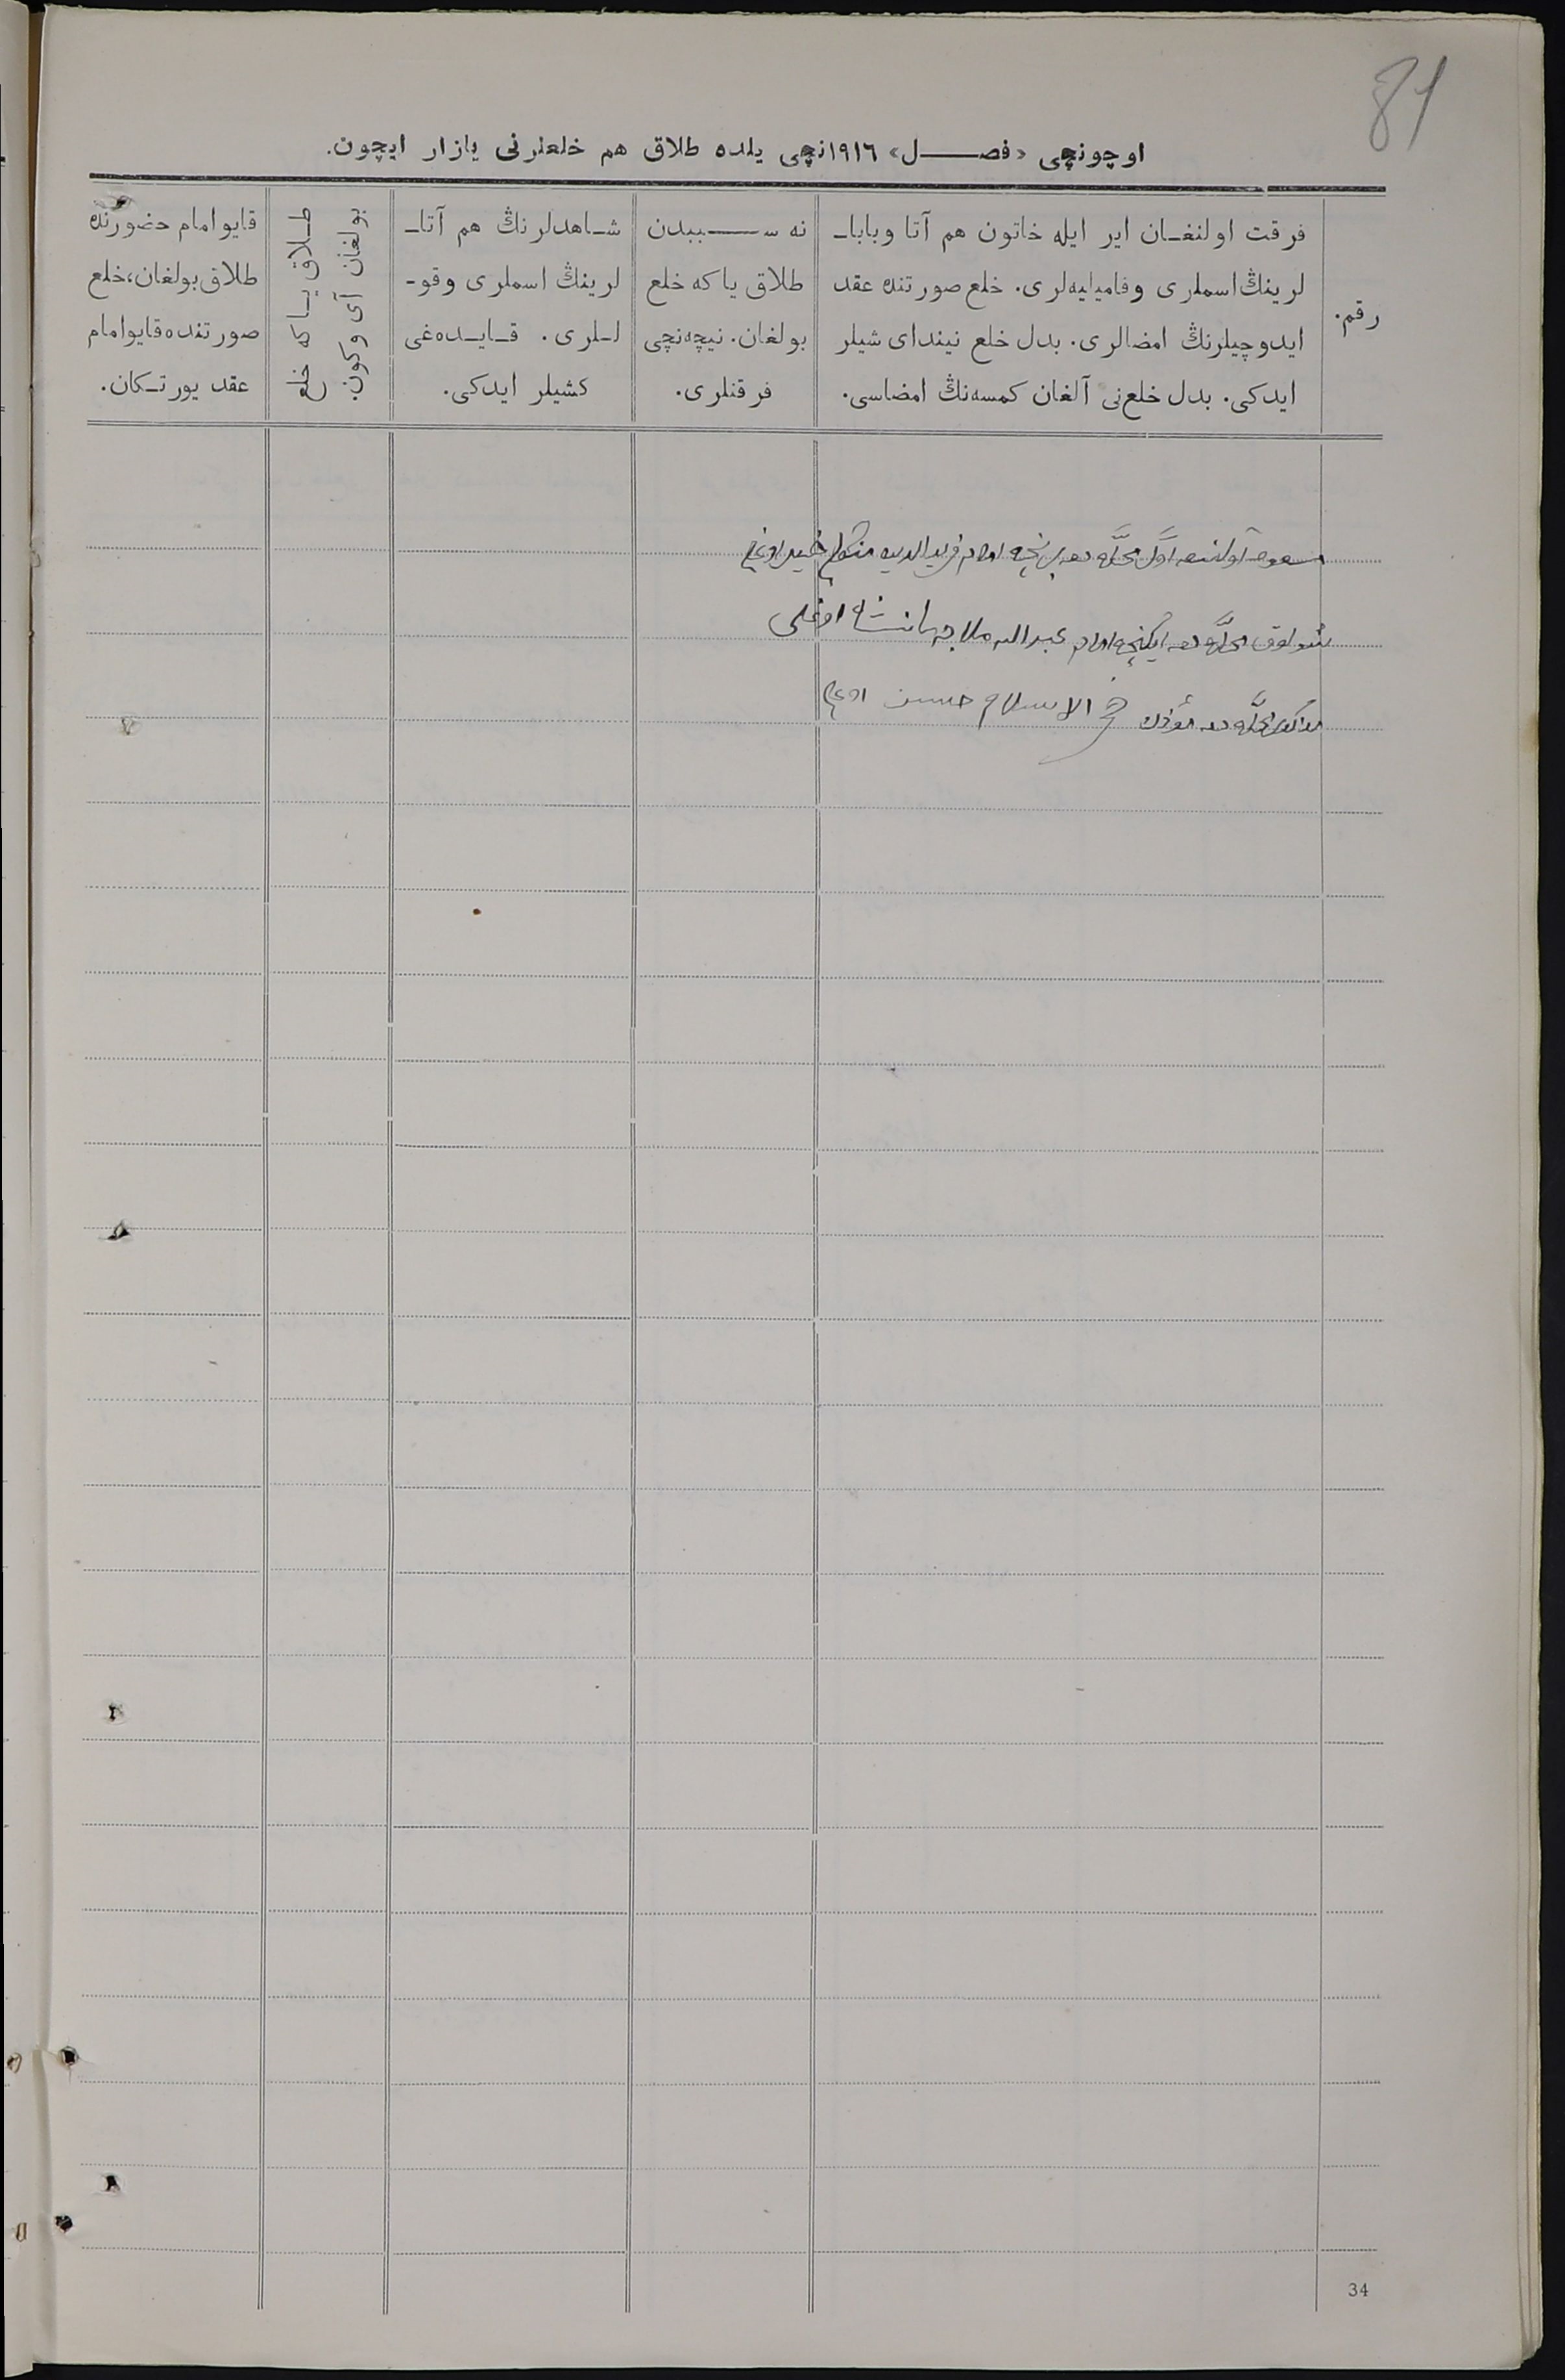 81
اوچونچی «فصـــل» ١٩١٦نچی یلده طلاق هم خلعلرنی یازار ایچون.
رقم.
فرقت اولنغـان ایر ایله خاتون هم آتا وبابا۔
لرینڭ اسملری وفامیلیه‌لری. خلع صورتنده عقد
ایدوچیلرنڭ امضالری. بدل خلع نیندای شیلر
ایدکی. بدل خلع‌نی آلغان کمسه‌نڭ امضاسی.
نه ســـببدن
طلاق یا که خلع
بولغان. نیچه‌نچی
فرقتلری.
شـاهدلرنڭ هم آتا۔
لرینڭ اسملری وقو۔
لـلری. قـایـده‌غی
کشیلر ایدکی.
طـلاق یـا که خلع
بولغان آی وکون.
قایو امام حضورنده
طلاق بولغان، خلع
صورتنده قایو امام
عقد یورتـکان.
اول محله امام فریدالدین اوغلی
شول محله ایکنچی امام عبدالله ملا جهانشاه اوغلی
محله مؤذن الاسلام حسین اوغلی
34